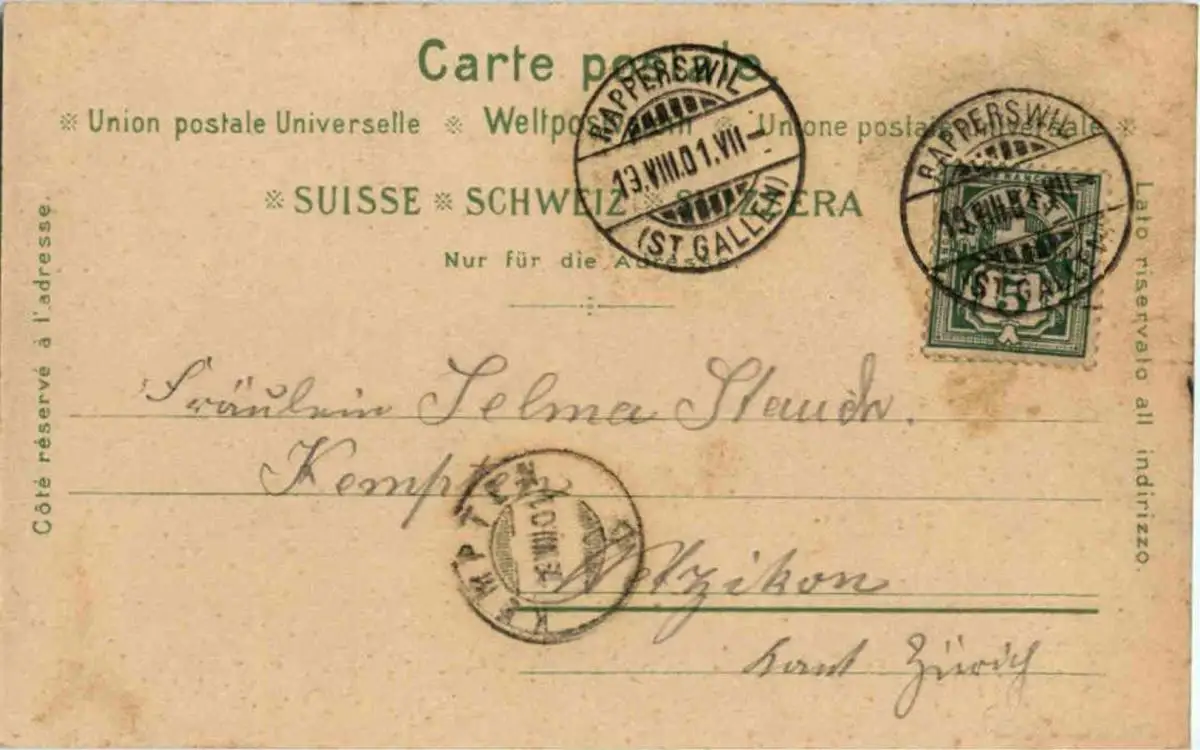 Carte postale.
Union postale Universelle Weltpostverein Unione postale universale
SUISSE SCHWEIZ SVIZZERA
Nur für die Adresse.
Côté réservé à l'adresse.
Lato riservato all indirizzo.
RAPPERSWIL
13.VIII.01.VII
(ST GALLEN)
RAPPERSWIL
13.VIII.01.VII
(ST GALLEN)
FRANCO
5
Fräulein Selma Stauch.
Kempten
KEMPTEN
Wetzikon
Kant Zürich